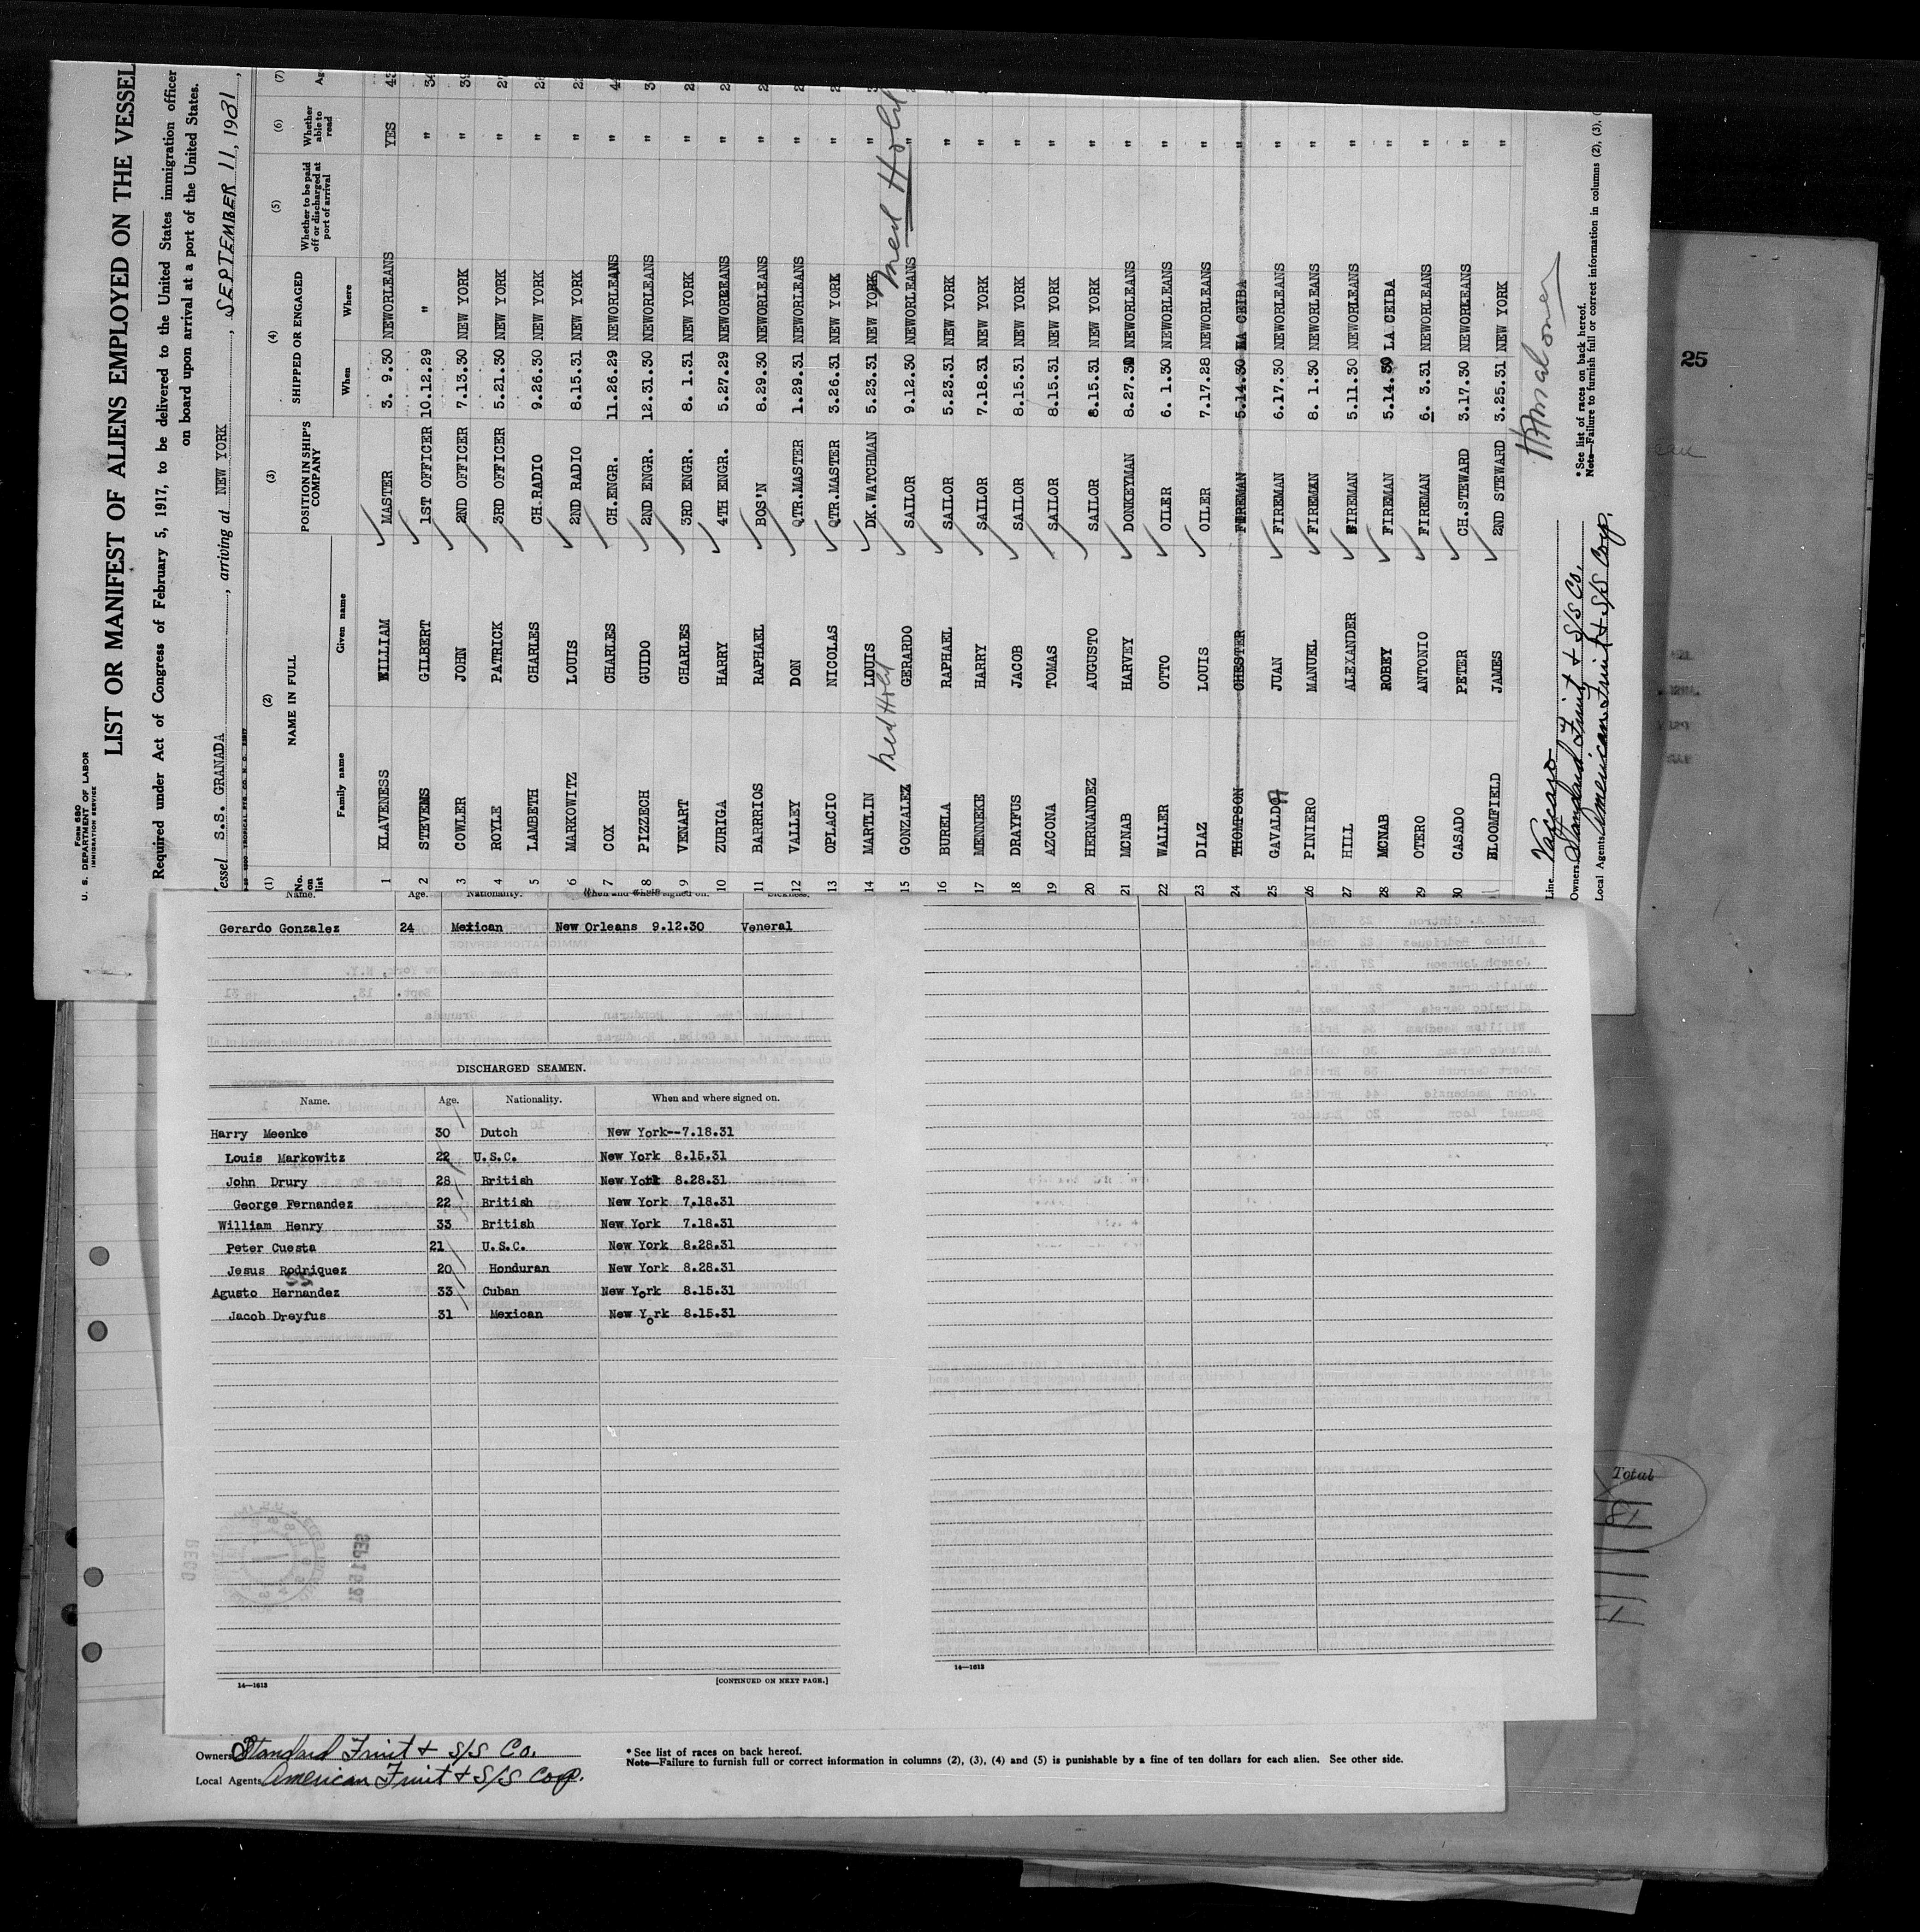 Form 680
U. S. DEPARTMENT OF LABOR
IMMIGRATION SERVICE
LIST OR MANIFEST OF ALIENS EMPLOYED ON THE VESSEL
Required under Act of Congress of February 5, 1917, to be delivered to the United States immigration officer
on board upon arrival at a port of the United States.
essel S.S. GRANADA, arriving at NEW YORK, SEPTEMBER 11, 1931,
(1) (2) (3) (4) (5) (6) (7)
No. on list NAME IN FULL POSITION IN SHIP'S COMPANY SHIPPED OR ENGAGED Whether to be paid off or discharged at port of arrival Whether able to read Ag
Family name Given name When Where
1 KLAVENESS WILLIAM MASTER 3. 9.30 NEWORLEANS YES
2 STEVENS GILBERT 1ST OFFICER 10.12.29 " "
3 COWLER JOHN 2ND OFFICER 7.13.30 NEW YORK "
4 ROYLE PATRICK 3RD OFFICER 5.21.30 NEW YORK "
5 LAMBETH CHARLES CH.RADIO 9.26.30 NEW YORK "
6 MARKOWITZ LOUIS 2ND RADIO 8.15.31 NEW YORK "
7 COX CHARLES CH.ENGR. 11.26.29 NEWORLEANS "
8 PIZZECH GUIDO 2ND ENGR. 12.31.30 NEWORLEANS "
9 VENART CHARLES 3RD ENGR. 8. 1.31 NEW YORK "
10 ZURIGA HARRY 4TH ENGR. 5.27.29 NEWORLEANS "
11 BARRRIOS RAPHAEL BOS'N 8.29.30 NEWORLEANS "
12 VALLEY DON QTR.MASTER 1.29.31 NEWORLEANS "
13 OPLACIO NICOLAS QTR.MASTER 3.26.31 NEW YORK "
14 MARTLIN LOUIS DK.WATCHMAN 5.23.31 NEW YORK "
Med Hold Med Hold
15 GONZALEZ GERARDO SAILOR 9.12.30 NEWORLEANS "
16 BURELA RAPHAEL SAILOR 5.23.31 NEW YORK "
17 MENNEKE HARRY SAILOR 7.18.31 NEW YORK "
18 DRAYFUS JACOB SAILOR 8.15.31 NEW YORK "
19 AZCONA TOMAS SAILOR 8.15.31 NEW YORK "
20 HERNANDEZ AUGUSTO SAILOR 8.15.31 NEW YORK "
21 MCNAB HARVEY DONKEYMAN 8.27.30 NEWORLEANS "
22 WALLER OTTO OILER 6. 1.30 NEWORLEANS "
23 DIAZ LOUIS OILER 7.17.28 NEWORLEANS "
24 THOMPSON CHESTER FIREMAN 5.14.30 LA CEIBA "
25 GAVALDA JUAN FIREMAN 6.17.30 NEWORLEANS "
26 PINIERO MANUEL FIREMAN 8. 1.30 NEWORLEANS "
27 HILL ALEXANDER FIREMAN 5.11.30 NEWORLEANS "
28 MCNAB ROBEY FIREMAN 5.14.30 LA CEIBA "
29 OTERO ANTONIO FIREMAN 6. 3.31 NEWORLEANS "
30 CASADO PETER CH.STEWARD 3.17.30 NEWORLEANS "
BLOOMFIELD JAMES 2ND STEWARD 3.25.31 NEW YORK "
Line Vaccaro
Owners Standard Fruit & S/S Co.
Local Agents American Fruit & S/S Corp.
*See list of races on back hereof.
Note—Failure to furnish full or correct information in columns (2), (3), (
Name. Age. Nationality. When and where signed on. Sickness.
Gerardo Gonzalez 24 Mexican New Orleans 9.12.30 Veneral
DISCHARGED SEAMEN.
Name. Age. Nationality. When and where signed on.
Harry Meenke 30 Dutch New York--7.18.31
Louis Markowitz 22 U.S.C. New York 8.15.31
John Drury 28 British New York 8.28.31
George Fernandez 22 British New York 7.18.31
William Henry 33 British New York 7.18.31
Peter Cuesta 21 U.S.C. New York 8.28.31
Jesus Rodriquez 20 Honduran New York 8.28.31
Agusto Hernandez 33 Cuban New York 8.15.31
Jacob Dreyfus 31 Mexican New York 8.15.31
14—1613
[CONTINUED ON NEXT PAGE.]
14—1613
Owners Standard Fruit & S/S Co.
Local Agents American Fruit & S/S Corp.
*See list of races on back hereof.
Note—Failure to furnish full or correct information in columns (2), (3), (4) and (5) is punishable by a fine of ten dollars for each alien. See other side.
25
Total
81